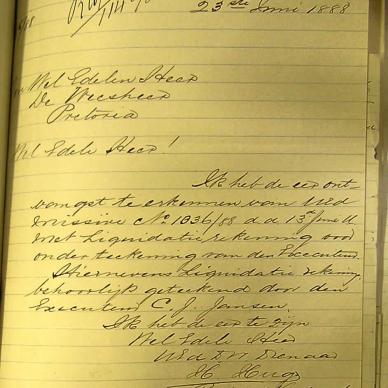 23ste Juni 1888
Wel Edelen Heer
De Weesheer
Pretoria
Wel Edele Heer!
Ik heb de eer ont-
vangst te erkennen van UEd
missive No 1336/88 d.d. 13 Juni ll
met Liquidatierekening voor
onderteekening van den Executeur.
Hiernevens Liquidatie rekeng.
behoorlijk geteekend door den
Executeur C. J. Jansen.
Ik heb de eer te zijn
Wel Edele Heer
UEd Dw Dienaar
H